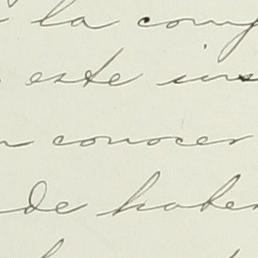 la comp
este ins
conocer
de haber